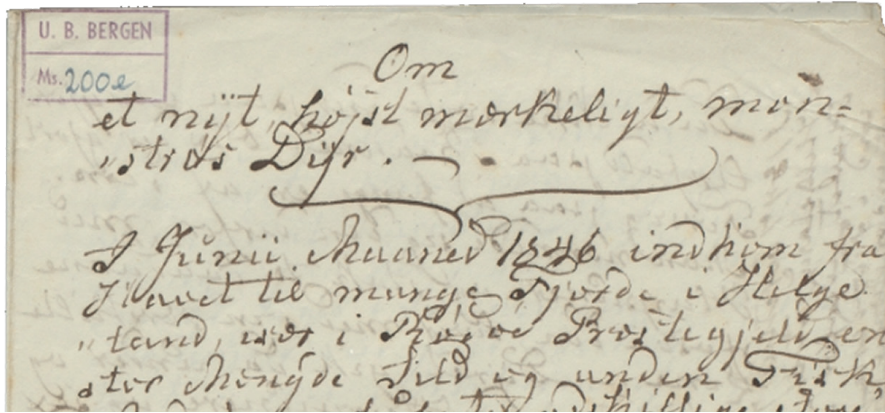 U. B. BERGEN
Ms. 200e
Om
et nijt, højst mærkeligt, mon-
„strøs Dijr. —
I Junii Maaned 1846 indkom fra
Havet til mange Fjorde i Helge
„land, især i Rødøe Præstegjeld, en
stor Mengde Sild og anden Fisk